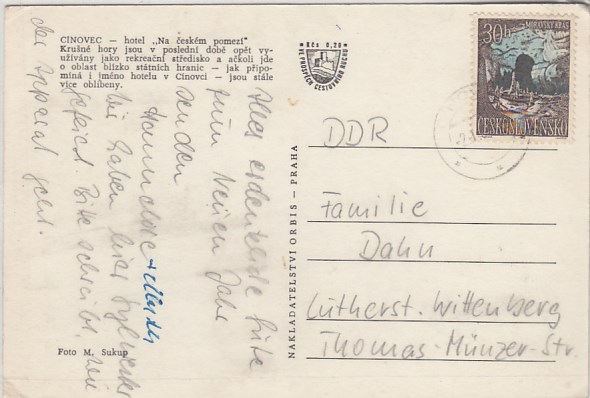 CÍNOVEC — hotel „Na českém pomezí"
Krušné hory jsou v poslední době opět vy-
užívány jako rekreační středisko a ačkoli jde
o oblast blízko státních hranic — jak připo-
míná i jméno hotelu v Cínovci — jsou stále
více oblíbeny.
Kčs 0,20
VE PROSPĚCH CESTOVNÍHO RUCHU
MORAVSKÝ KRAS
30h
ČESKOSLOVENSKO
Alles erdenkliche Gute
zum Neuen Jahr
senden
Hannelore +
Wir haben hier Sylvester
gefeiert. Bitte schreibt, wie
der Apparat geht.
NAKLADATELSTVÍ ORBIS — PRAHA
DDR
Familie
Dahn
Lutherst. Wittenberg
Thomas-Münzer-Str.
Foto M. Sukup